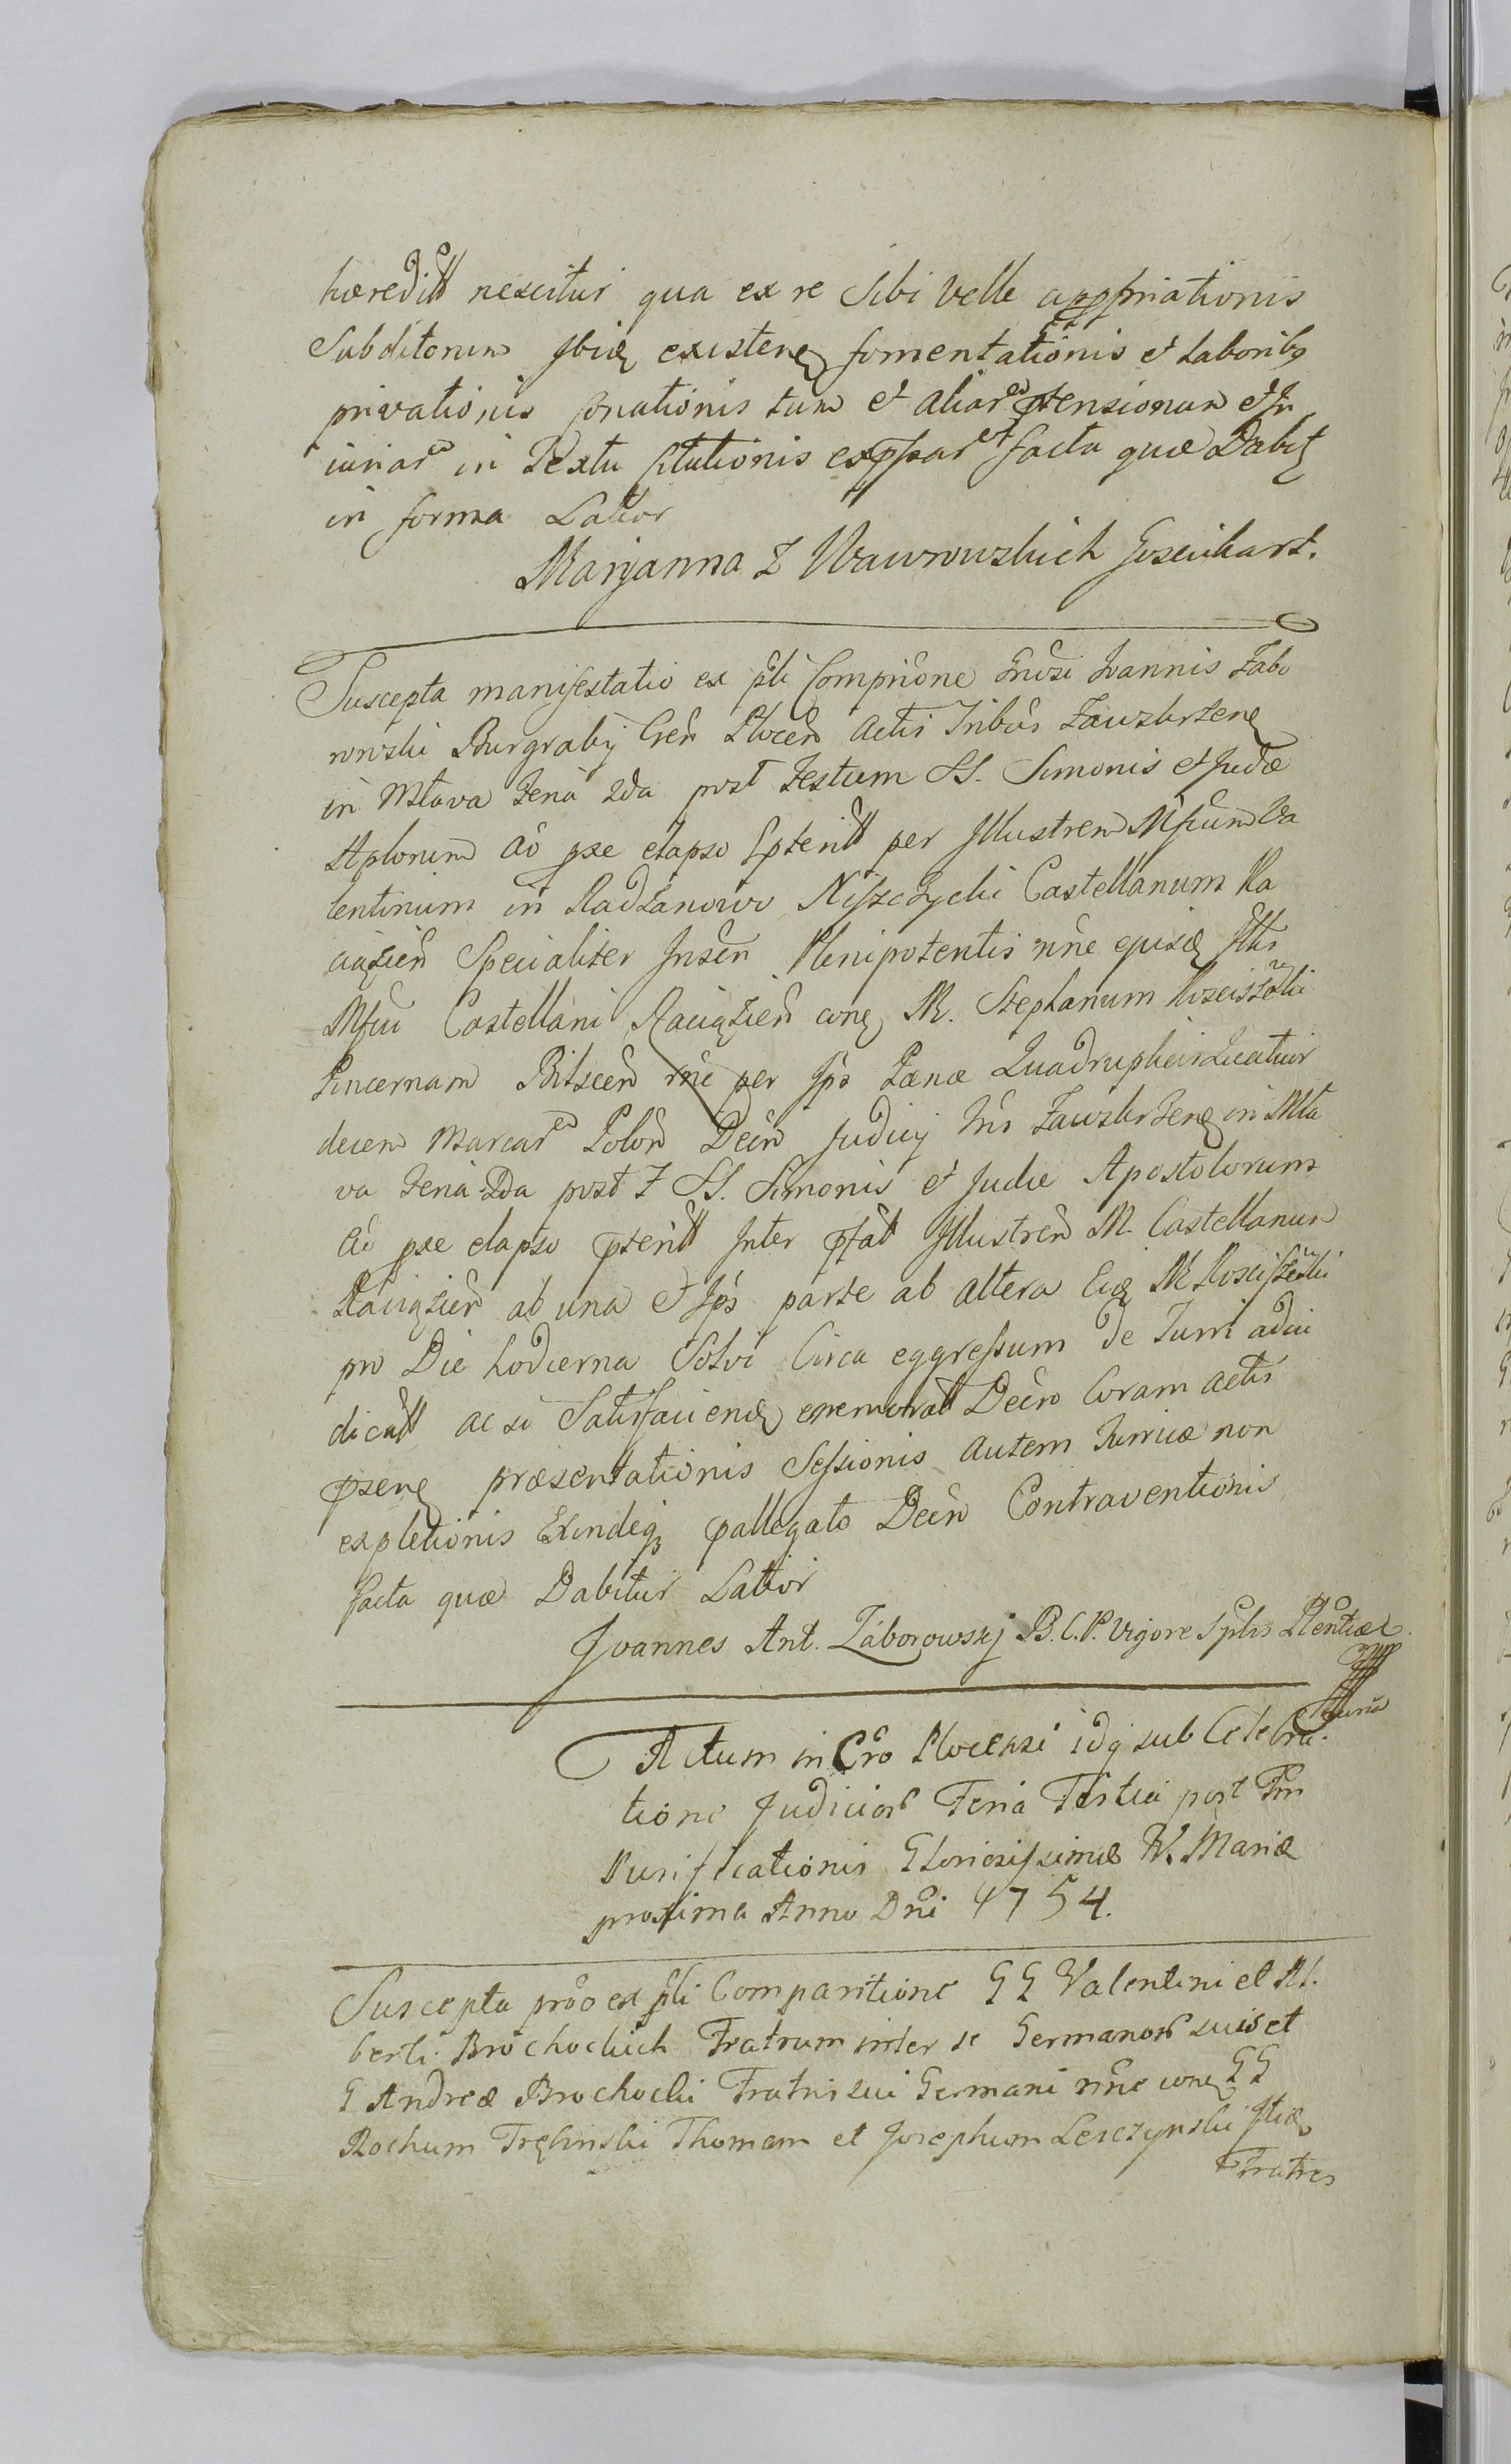 hæreditt nescitur qua ex re Sibi velle appriationis
Subditorum Ibidę existenę fomentationis et Laboribꝫ
privationis tum et aliar ptensionum et In
iuriar in Textu Citationis exppsar facta quæ Dabitꝫ
in forma Latior
Maryanna Z Wawrowskich
Suscepta manifestatio ex pli Compricione Gnosi Joannis Zabo
rowski Burgrabij Cren Plocen actis Tribus Zawskrzenę
in Mława feria 2da post Festum SS. Simonis et Judæ
Aplorum ao pxe elapso per Illustrem Mfcum Va
lentinum in Radzanowo Niszczycki Castellanum Ra
ciązien Specialiter Insen Plenipotentis nne ejusdę Illris
Mfci Castellani Raciązien conę M. Stephanum Kosciszewski
Pincernam nne per Ips Pænæ Quadruplicis Quatuor
decem Marcar Polon Decn Judicij Tris Zawskrzenę in Mła
va feria 2da post F SS. Simonis et Judæ Apostolorum
ao pxe elapso ptentt Inter pfat Illustrem M. Castellanum
Raciązien ab una et Ips parte ab altera Eudę M Kosciszewski
pro Die hodierna Solvi Circa eggressum de Turri adiu
dicatt ac si Satisfaciendę Decro Coram actis
psenę præsentationis Sessionis autem Turricæ non
expletionis Exindeqꝫ pallegato Decro Contraventionis
facta quæ Dabitur Latior
Joannes Ant. Zaborowskj B. C. P. vigore Splis Plentiæ
Actum in Cro Plocensi idq sub Celebra-
tione Judicior Feria Tertia post Fm
Purificationis Gloriosissimæ V. Mariæ
proxima Anno Dni 1754.
Suscepta pro ex pli Comparitione G G Valentini et Al-
berti Brochockich Fratrum inter se Germanor suis et
G Andreæ Brochocki Fratris sui Germani nne conę G G
Rochum Trębinski Thomam et Josephum Lesczynski
Fratres